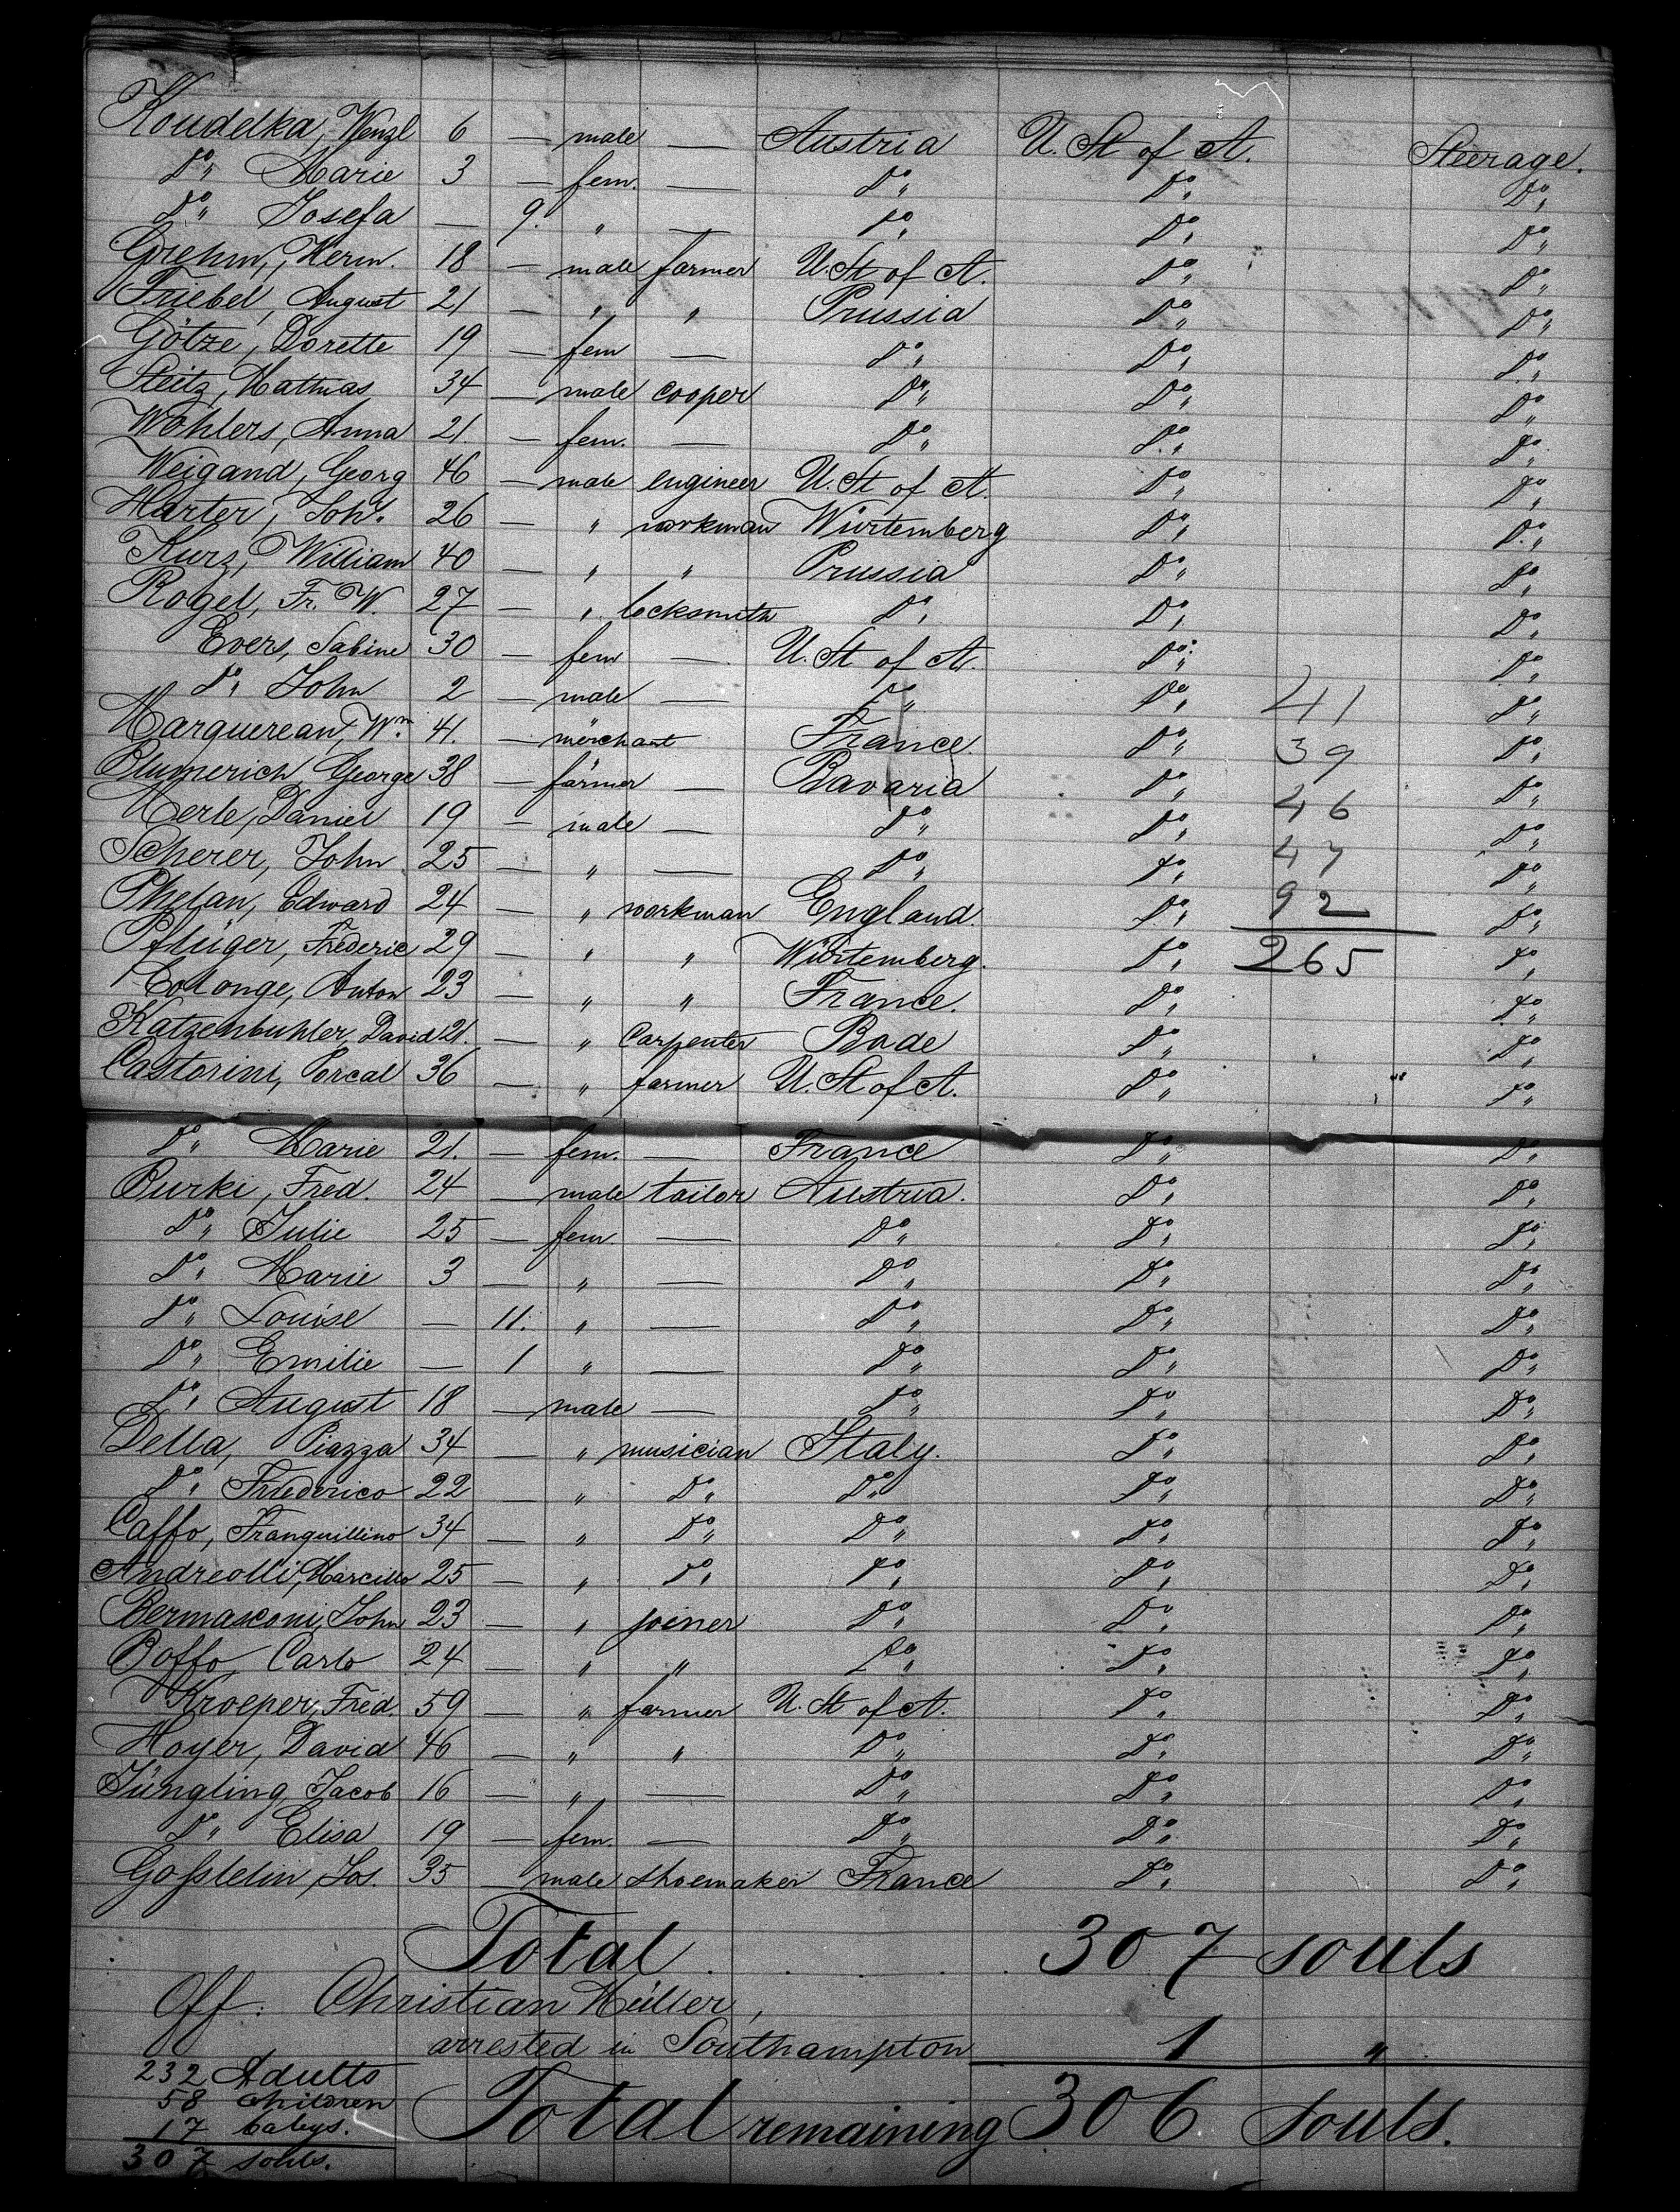 Koudelka, Wenzl 6 — male — Austria U. St of A. Steerage.
Do Marie 3 — fem. — Do Do Do
Do Josefa — 9. " — Do Do Do
Grehm, Herm. 18 — male farmer U. St of A. Do Do
Friebel, August 21 — " " Prussia Do Do
Götze, Dorette 19 — fem — Do Do Do
Steitz, Mathias 34 — male cooper Do Do Do
Wöhlers, Anna 21. — fem. — Do Do Do
Weigand, Georg 46 — male engineer U. St of A. Do Do
Harter, Joh. 26 — " workman Würtemberg Do Do
Kurz, William 40 — " " Prussia Do Do
Rogel, Fr. W. 27 — " locksmith Do Do Do
Evers, Sabine 30 — fem — U. St of A. Do Do
Do John 2 — male — Do Do 41 Do
Marquerean, Wm. 41. — merchant France Do 39 Do
Blumerich, George 38 — farmer — Bavaria Do 46 Do
Merle, Daniel 19 — male — Do Do 47 Do
Scherer, John 25 — " — Do Do Do
Phelan, Edward 24 — " workman England. Do 92 Do
Pflüger, Frederic 29 — " " Würtemberg. Do 265 Do
Colonge, Anton 23 — " " France. Do Do
Katzenbuhler, David 21. — " Carpenter Bade Do Do
Castorini, Porcal 36 — " farmer U. St of A. Do Do
Do Marie 21. — fem. — France Do Do
Burki, Fred. 24 — male tailor Austria. Do Do
Do Julie 25 — fem. — Do Do Do
Do Marie 3 — " — Do Do Do
Do Louise — 11. " — Do Do Do
Do Emilie — 1 " — Do Do Do
Do August 18 — male — Do Do Do
Della, Piazza 34 — " musician Italy. Do Do
Do Frederico 22 — " Do Do Do Do
Caffo, Tranquillino 34 — " Do Do Do Do
Andreolli, Marcillo 25 — " Do Do Do Do
Bermasconi, John 23 — " joiner Do Do Do
Boffo, Carlo 24 — " " Do Do Do
Kroeper, Fred. 59 — " farmer U. St of A. Do Do
Hoyer, David 46 — " " Do Do Do
Jüngling, Jacob 16 — " — Do Do Do
Do Elisa 19 — fem. — Do Do Do
Goßlelin, Jos. 35 — male shoemaker France Do Do
Total . . . . 307 souls
Off. Christian Müller,
arrested in Southampton 1 "
232 Adults
58 children
17 babys.
307 sohls.
Total remaining 306 souls.